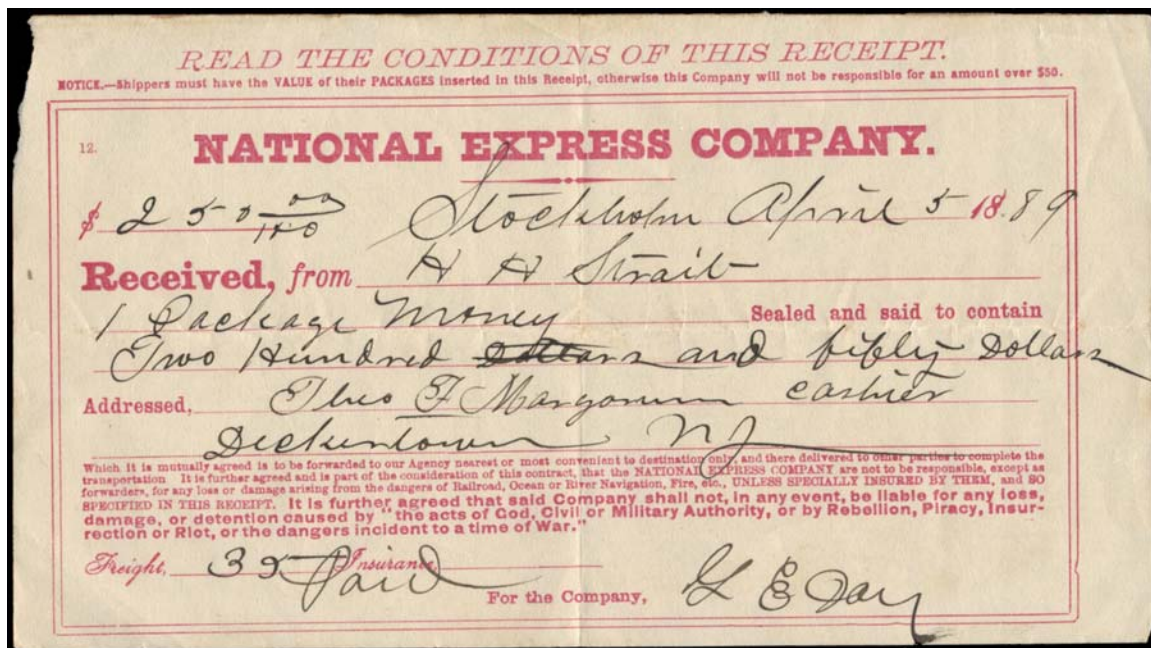 READ THE CONDITIONS OF THIS RECEIPT.
NOTICE.—Shippers must have the VALUE of their PACKAGES inserted in this Receipt, otherwise this Company will not be responsible for an amount over $50.
12.
NATIONAL EXPRESS COMPANY.
$ 250 00/100 Stockholm April 5 1889
Received, from H H Strait
1 Package Money Sealed and said to contain
Two Hundred Dollars and fifty Dollars
Addressed, Theo F Margarum cashier
Deckertown NJ
Which it is mutually agreed is to be forwarded to our Agency nearest or most convenient to destination only, and there delivered to other parties to complete the
transportation It is further agreed and is part of the consideration of this contract, that the NATIONAL EXPRESS COMPANY are not to be responsible, except as
forwarders, for any loss or damage arising from the dangers of Railroad, Ocean or River Navigation, Fire, etc., UNLESS SPECIALLY INSURED BY THEM, and SO
SPECIFIED IN THIS RECEIPT. It is further agreed that said Company shall not, in any event, be liable for any loss,
damage, or detention caused by "the acts of God, Civil or Military Authority, or by Rebellion, Piracy, Insur-
rection or Riot, or the dangers incident to a time of War."
Freight, 35 Paid Insurance,
For the Company, G E Day